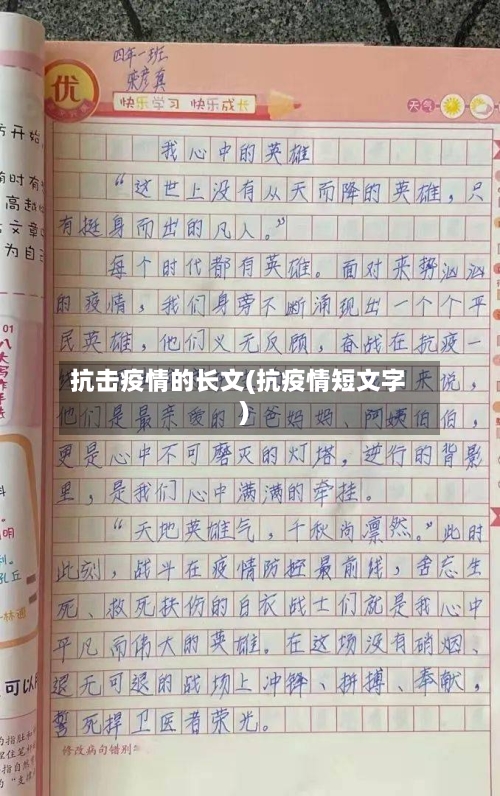 四年一班
优
快乐学习 快乐成长
天气
我心中的英雄
“这世上没有从天而降的英雄，只
有挺身而出的凡人。”
每个时代都有英雄。面对来势汹汹
的疫情，我们身旁不断涌现出一个个平
民英雄，他们义无反顾，奋战在抗疫一
抗击疫情的长文(抗疫情短文字
)
来说，
他们是最亲爱的爸爸妈妈、阿姨伯伯，
更是心中不可磨灭的灯塔，逆行的背影
里，是我们心中满满的牵挂。
“天地英雄气，千秋尚凛然。”此时
此刻，战斗在疫情防控最前线，舍忘生
死、救死扶伤的白衣战士们就是我心中
平凡而伟大的英雄。在这场没有硝烟、
退无可退的战场上冲锋、拼搏、奉献，
誓死捍卫医者荣光。
修改病句错别
方开始
有时有
高越
文章
为自
01
八大写作手法
料
明
孔丘
林逋
可以